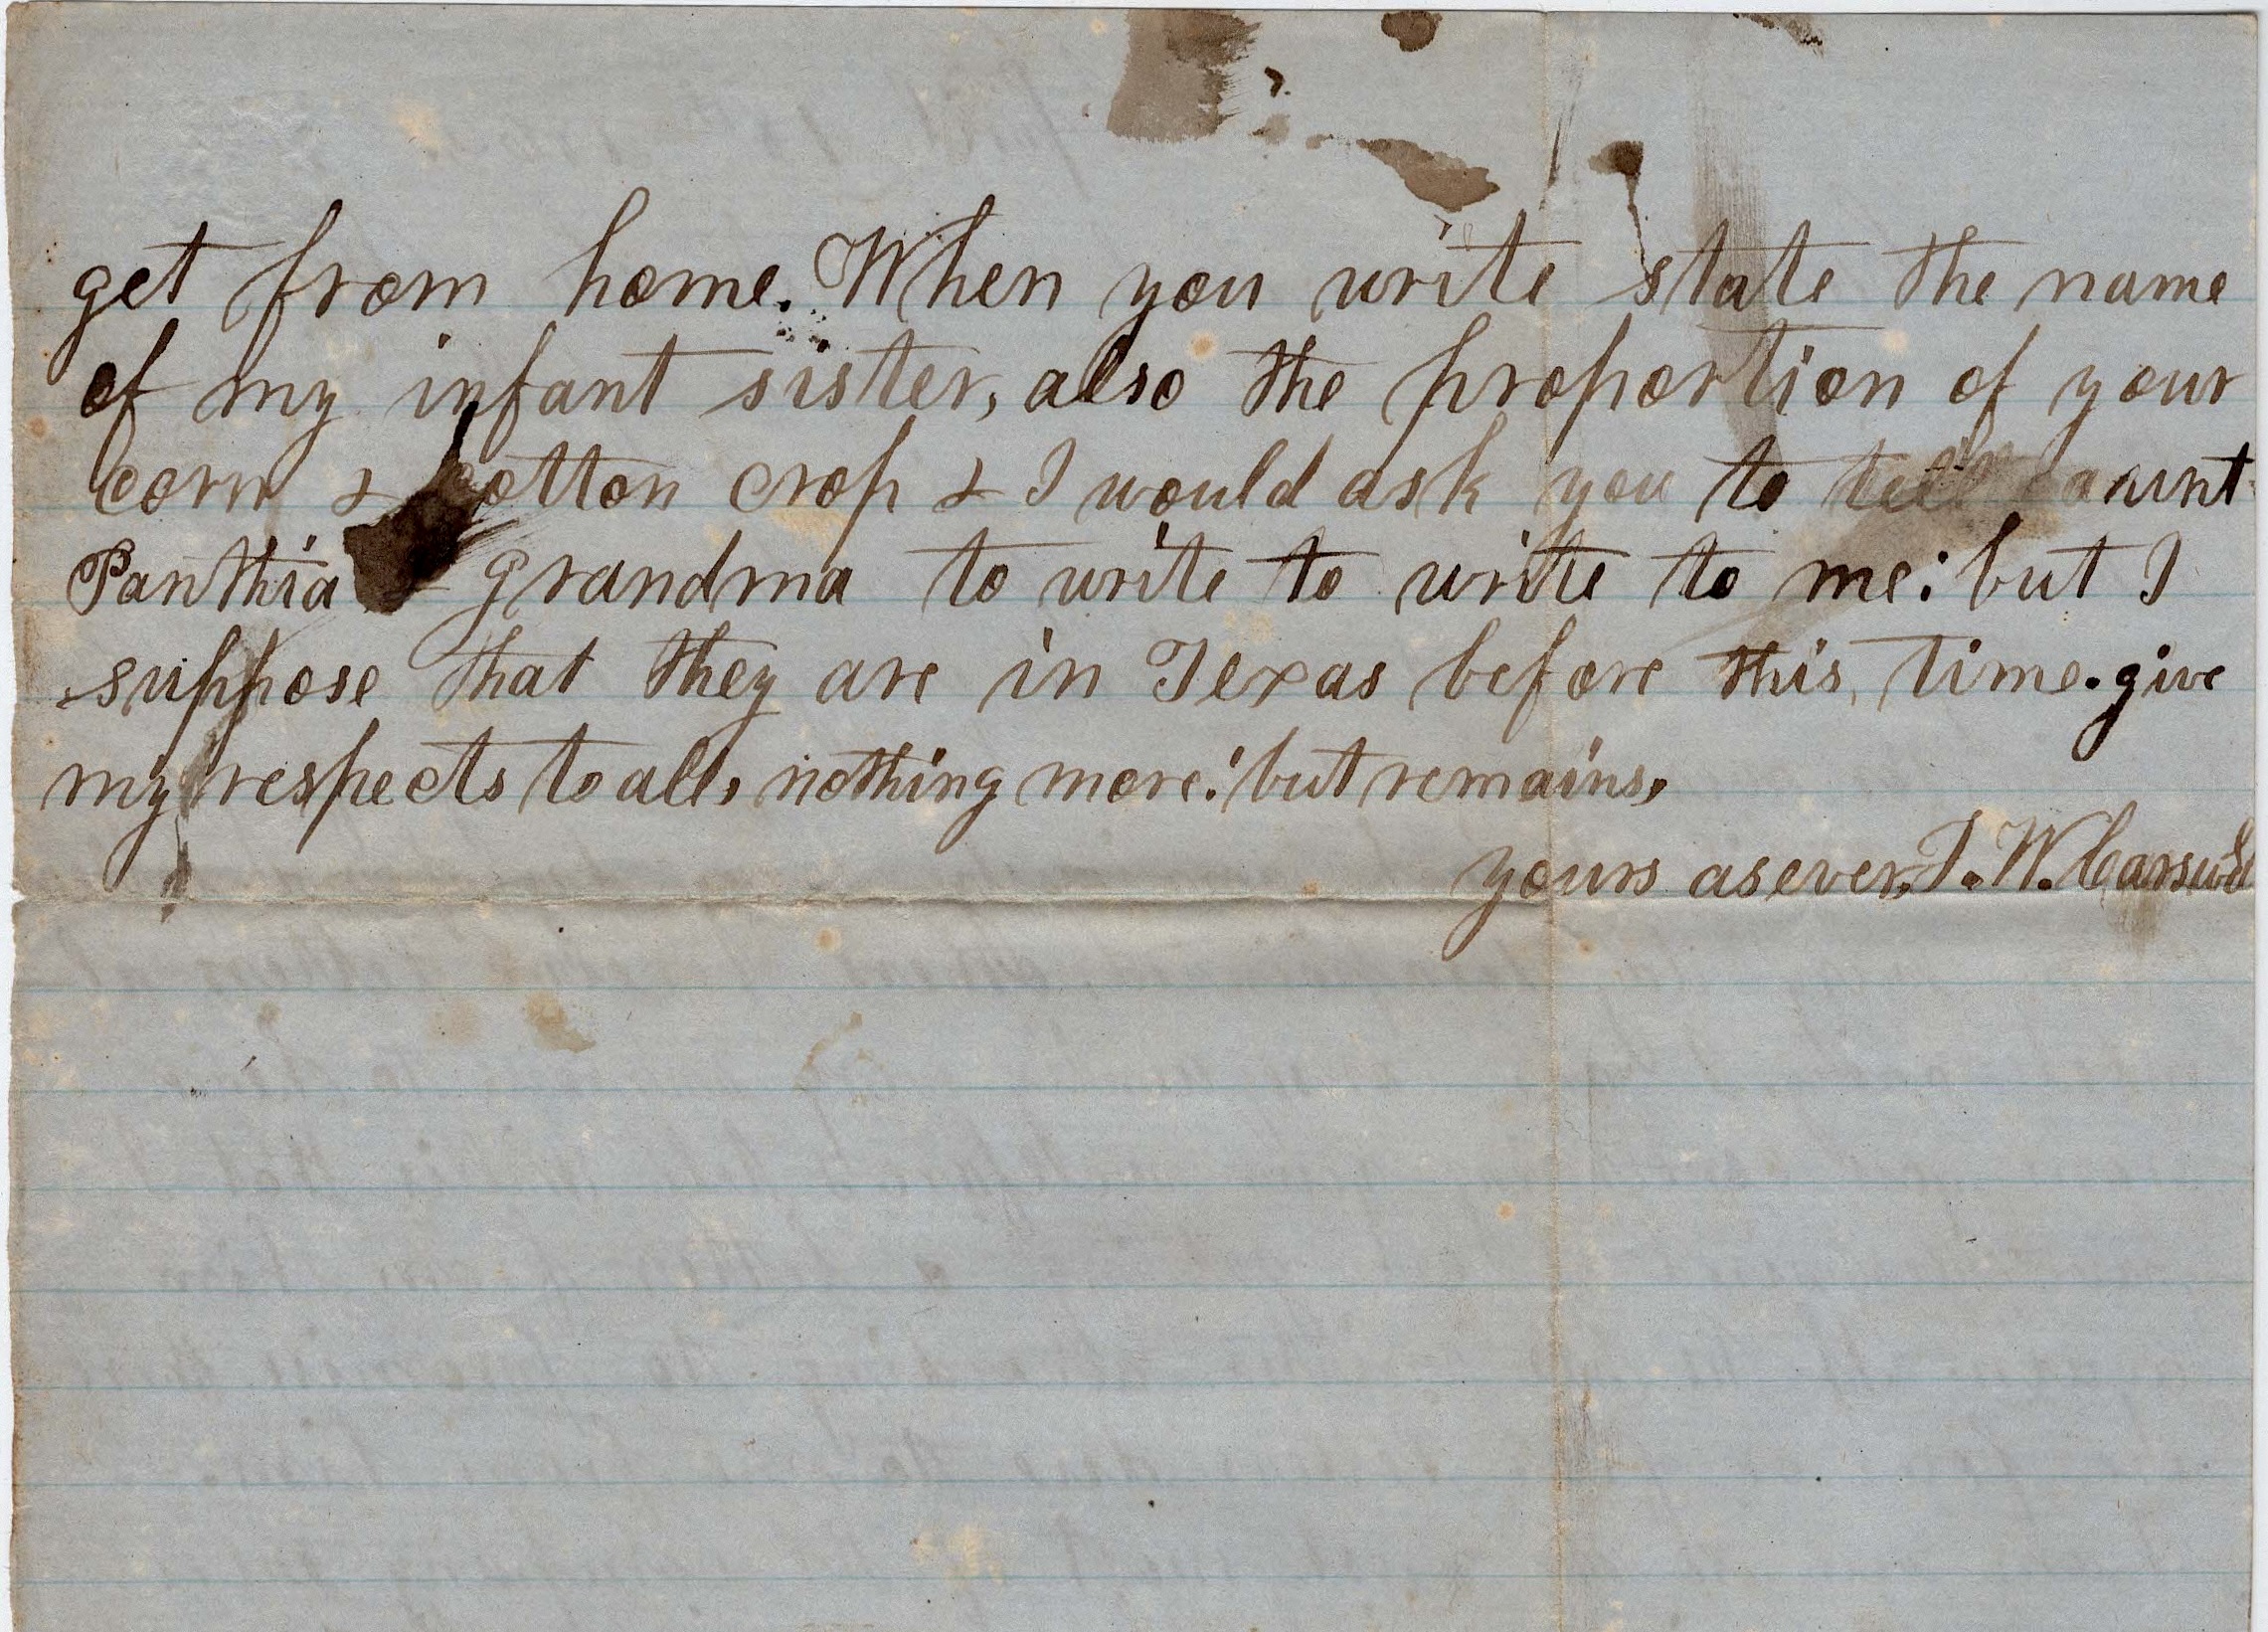 get from home. When you write state the name
of my infant sister, also the proportion of your
corn & cotton crop & I would ask you to tell aunt
Panthia & grandma to write to write to me: but I
suppose that they are in Texas before this time. give
my respects to all, nothing more: but remains,
yours as ever, J. W.